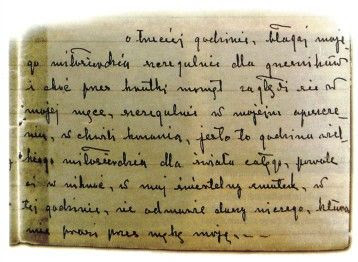 o trzeciej godzinie, błagaj moje-
go miłosierdzia szczególnie dla grzeszników
i choć przez krótki moment zagłąb się w
mojej męce, szczególnie w mojem opuszcze-
niu, w chwili konania, jest to godzina wiel-
kiego miłosierdzia dla świata całego, pozwolę
ci wniknąć, w mój śmiertelny smutek, w
tej godzinie, nie odmówię duszy niczego, która
mnie prosi przez mękę moją, —